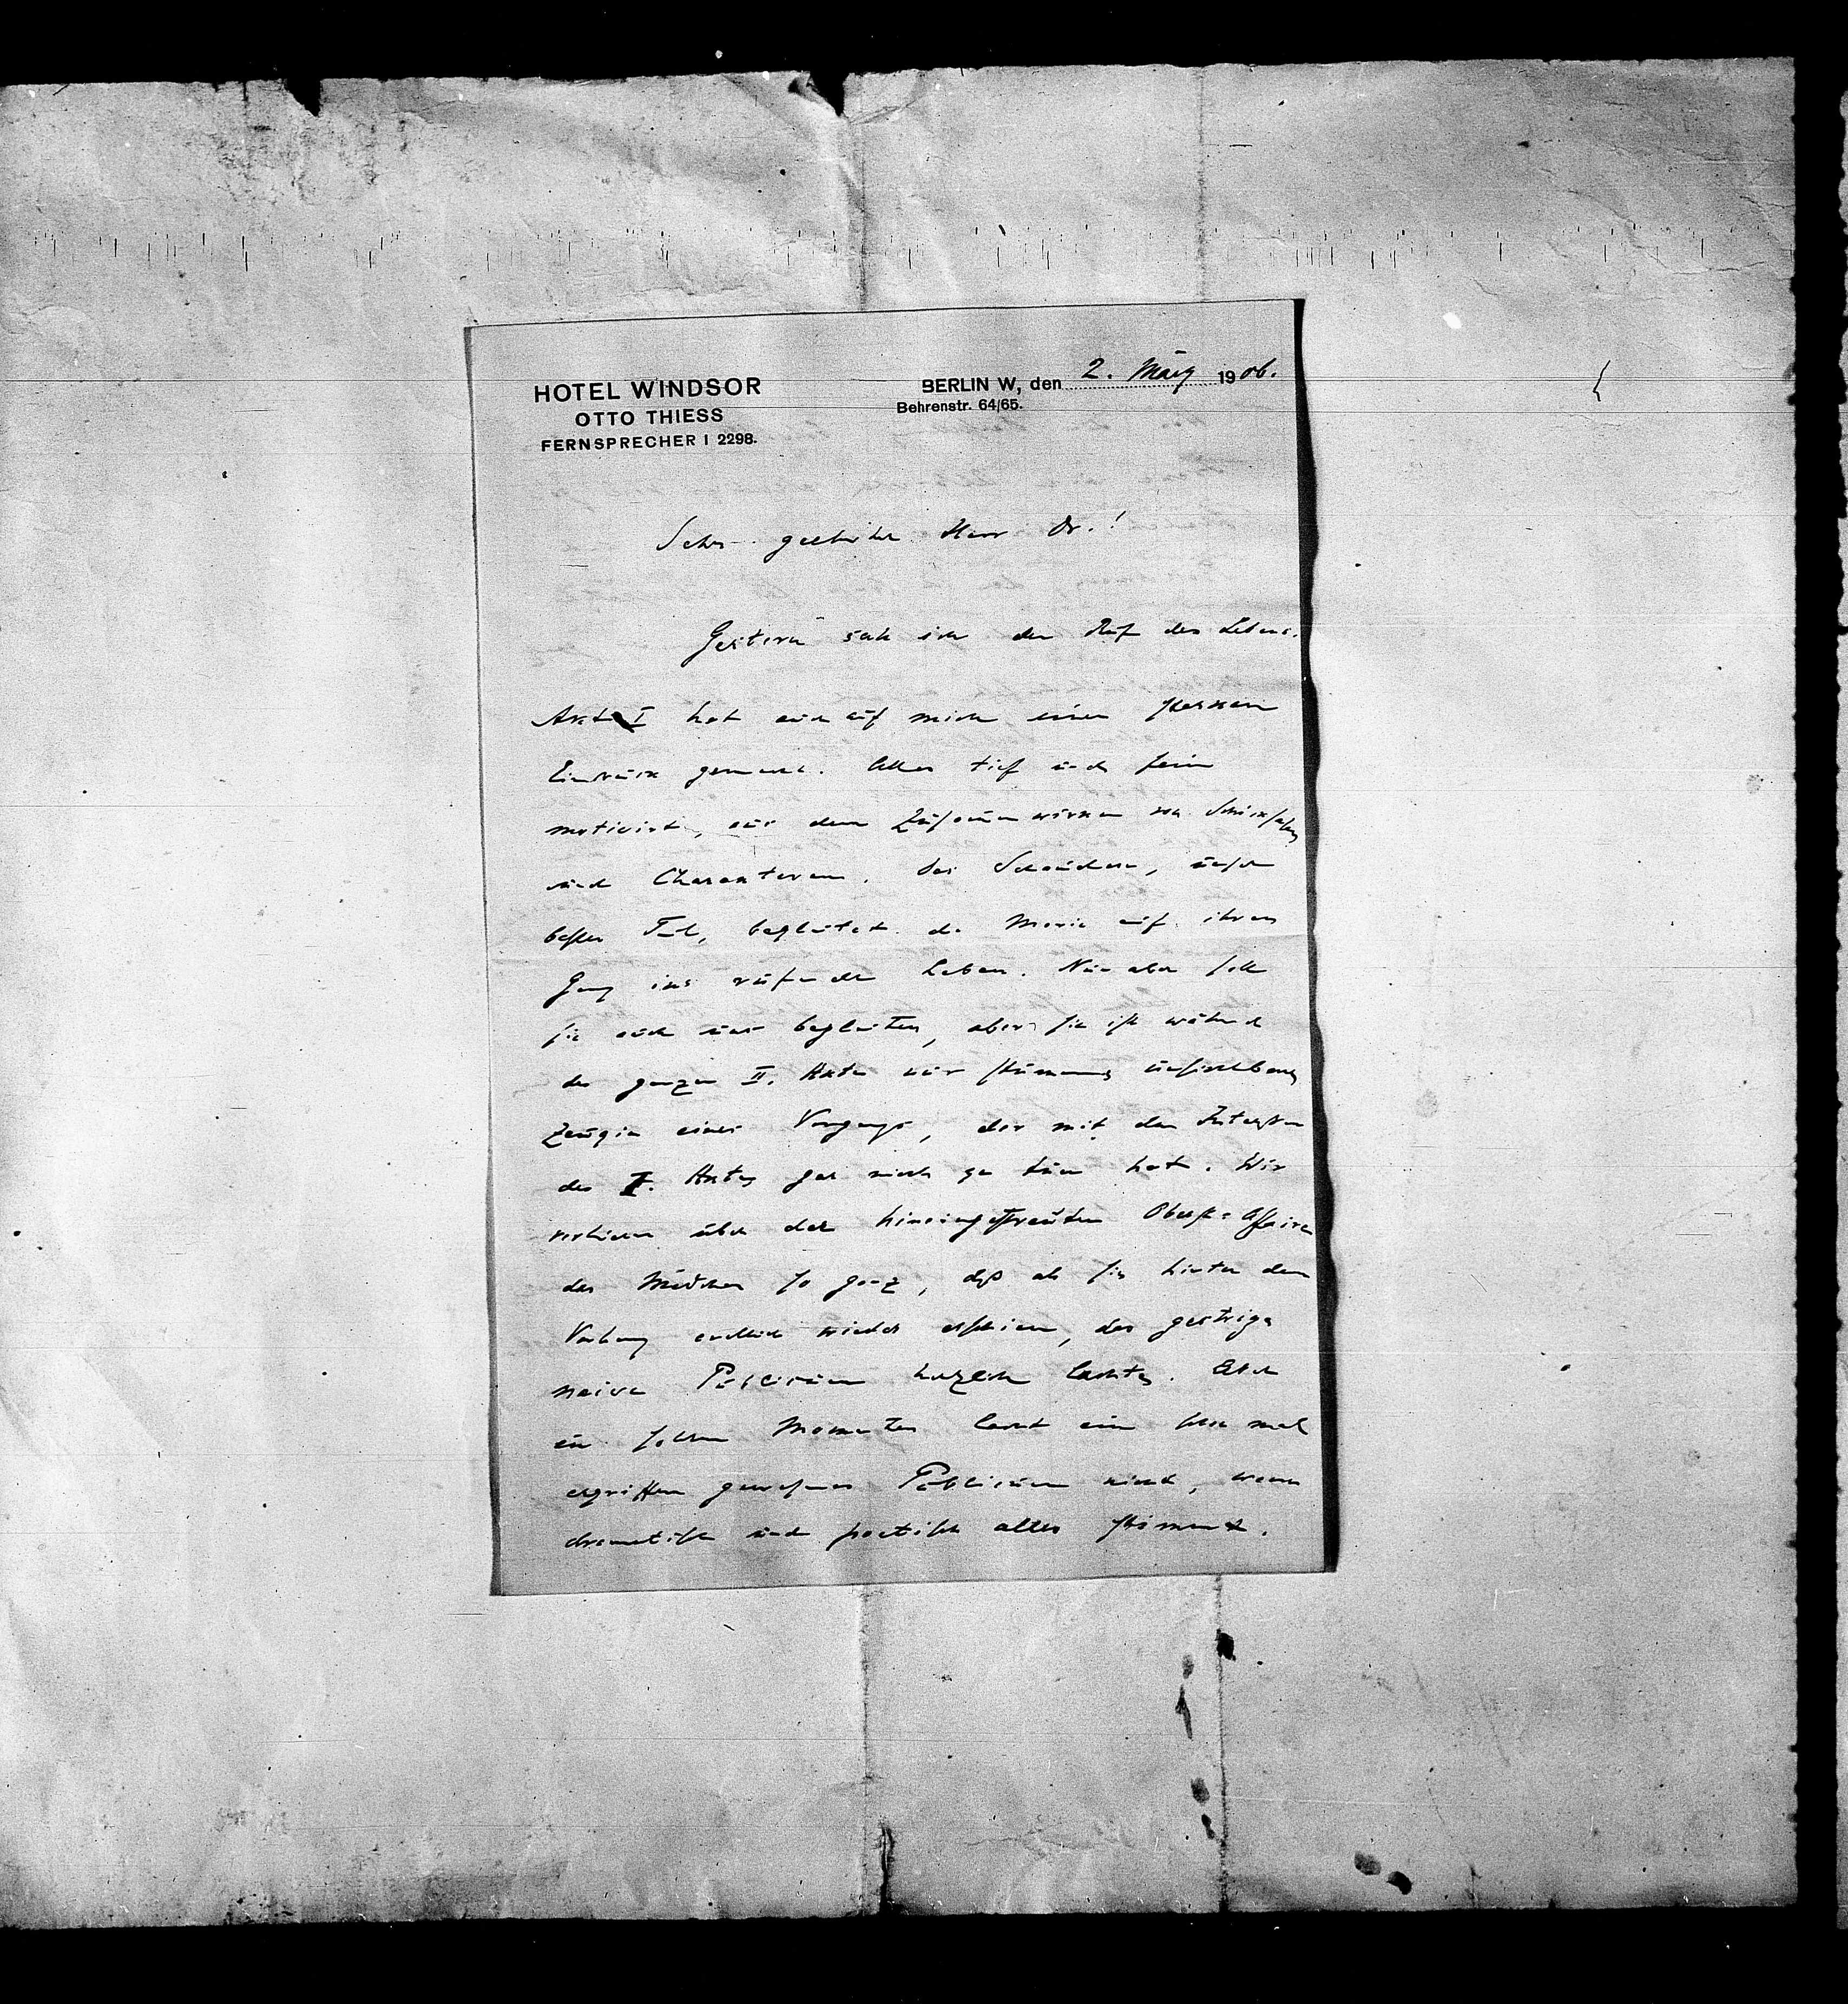 HOTEL WINDSOR
OTTO THIESS
FERNSPRECHER I 2298.
BERLIN W, den 2. März 1906.
Behrenstr. 64/65.
Sehr geehrter Herr Dr.!
Gestern sah ich den Ruf des Lebens.
Akt I hat auch auf mich einen starken
Eindruck gemacht. Alles tief und fein
motivirt, aus dem Zusammenwirken von Schicksalen
und Charakteren. Das Schaudern, unser
bester Teil, begleitet die Marie auf ihrem
Gang ins rufende Leben. Nun aber soll
sie auch uns begleiten, aber sie ist während
des ganzen II. Aktes nur stumme unsichtbare
Zeugin eines Vorgangs, der mit den Interessen
des I. Aktes gar nichts zu tun hat. Wir
verlieren über der hineingestreuten Oberst-Affaire
das Mädchen so ganz, daß als sie hinter dem
Vorhang endlich wieder erschien, das gestrige
naive Publicum herzlich lachte. Aber
in solchen Momenten lacht ein schon mal
ergriffen gewesenes Publicum nicht, wenn
dramatisch und poetisch alles stimmt.